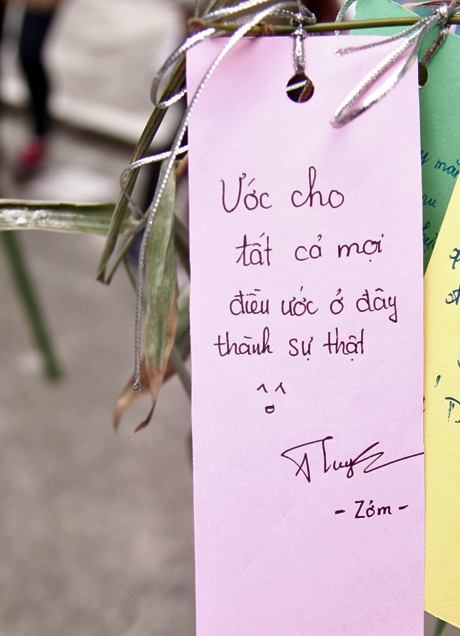 Ước cho
tất cả mọi
điều ước ở đây
thành sự thật
^ ^
- Zớm -